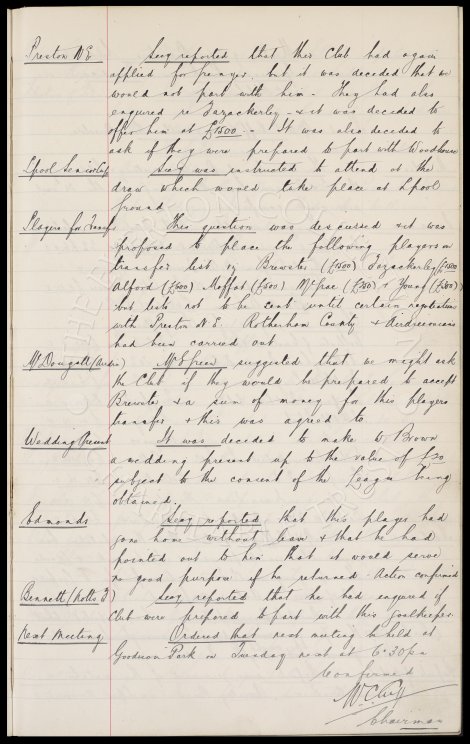 Preston N E. Secy reported that this Club had again
applied for Grenyer, but it was decided that we
would not part with him - They had also
enquired re Fazackerley - & it was decided to
offer him at £1500 - It was also decided to
ask if they were prepared to part with Woodhouse
Lpool Senior Cup Secy was instructed to attend at the
draw which would take place at Lpool
ground
Players for Transfer This question was discussed & it was
proposed to place the following players on
transfer list eg Brewster (£1500) Fazackerley (£1500)
Alford (£500) Moffat (£500) McGrae (£750) & Young (£500)
but lists not to be sent until certain negotiations
with Preston N E. Rotherham County & Airdrieonians
had been carried out
McDougall (Airdrie) Mr suggested that we might ask
the Club if they would be prepared to accept
Brewster & a sum of money for this players
transfer & this was agreed to
Wedding Present It was decided to make to Brown
a wedding present up to the value of £20
subject to the consent of the League being
obtained.
Edmonds Secy reported that this player had
gone home without leave & that he had
pointed out to him that it would serve
no good purpose if he returned. Action confirmed
Bennett (Notts F) Secy reported that he had enquired if
Club were prepared to part with this goalkeeper
Next Meeting Ordered that next meeting be held at
Goodison Park on Tuesday next at 6.30pm
Confirmed
W C Cuff
Chairman